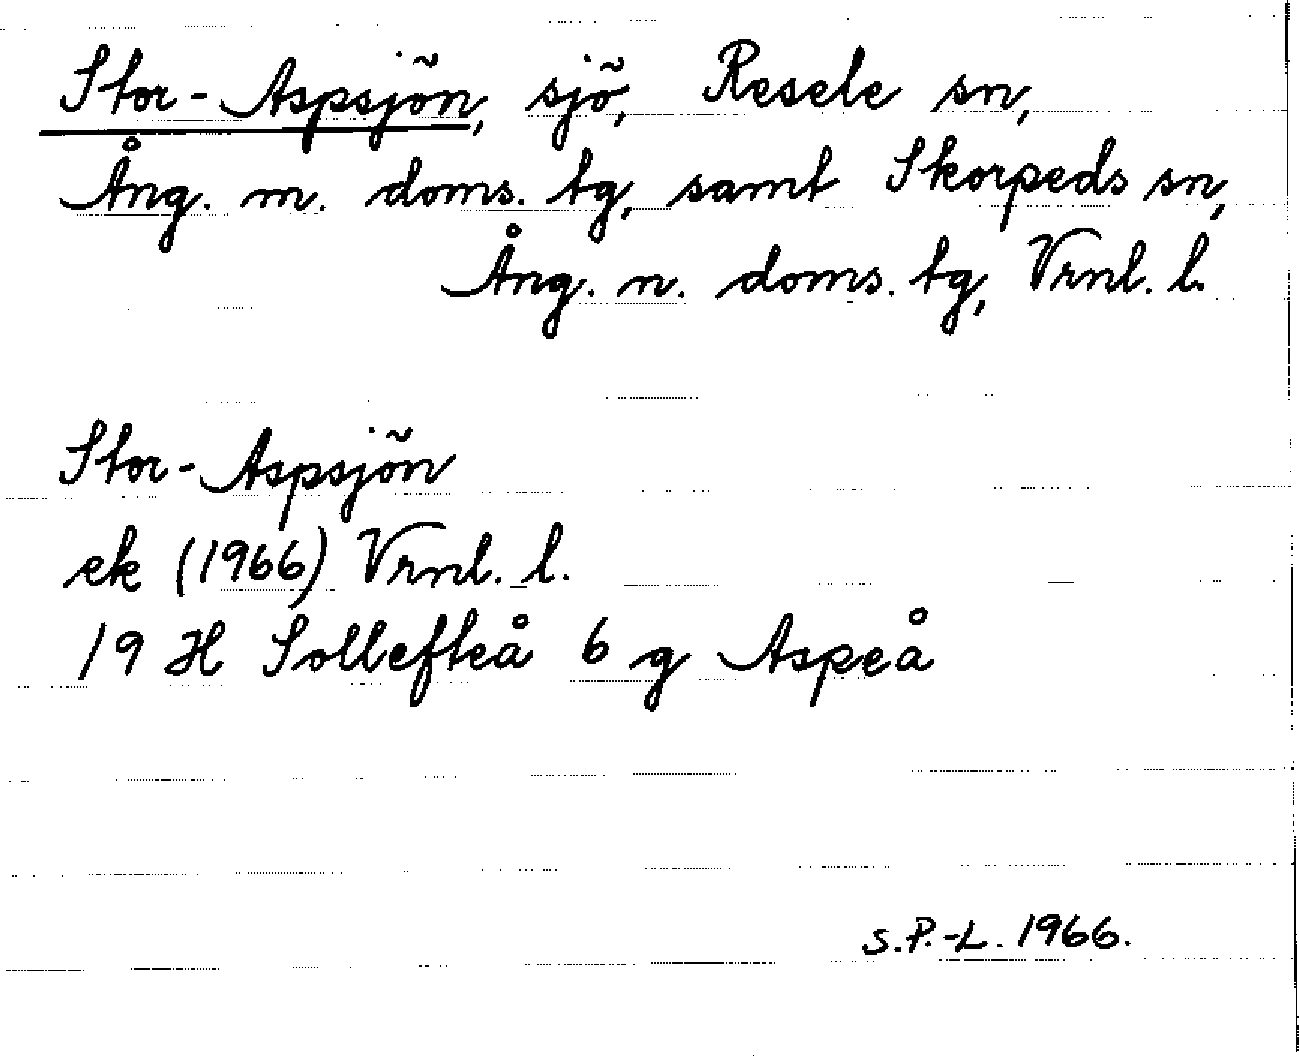 Stor-Aspsjön, sjö, Resele sn,
Ång. m. doms. tg, samt Skorpeds sn,
Ång. n. doms. tg, Vrnl. l.
Stor-Aspsjön
ek (1966) Vrnl. l.
19 H Sollefteå 6 g Aspeå
S.P.-L. 1966.